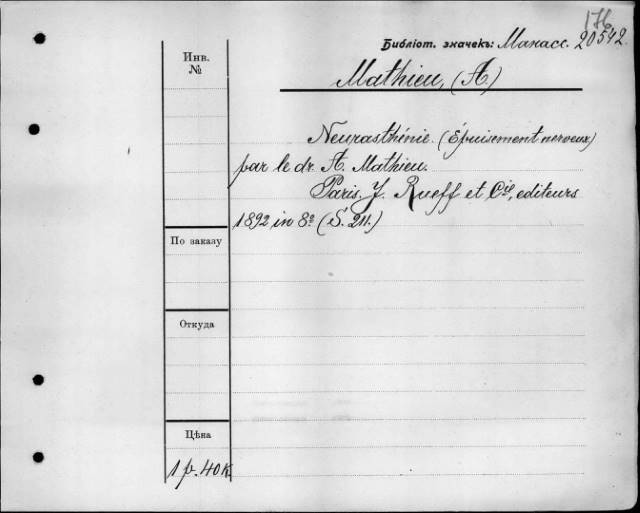 176
Библіот. значекъ: Манасс. 20542.
Инв.
№
Mathieu, (A)
Neurasthénie. (Épuisement nerveux)
par le dr. A. Mathieu.
Paris. J. Rueff et Cie, editeurs
1892 in 8º (S. 211.)
По заказу
Откуда
Цѣна
1 р. 40 к